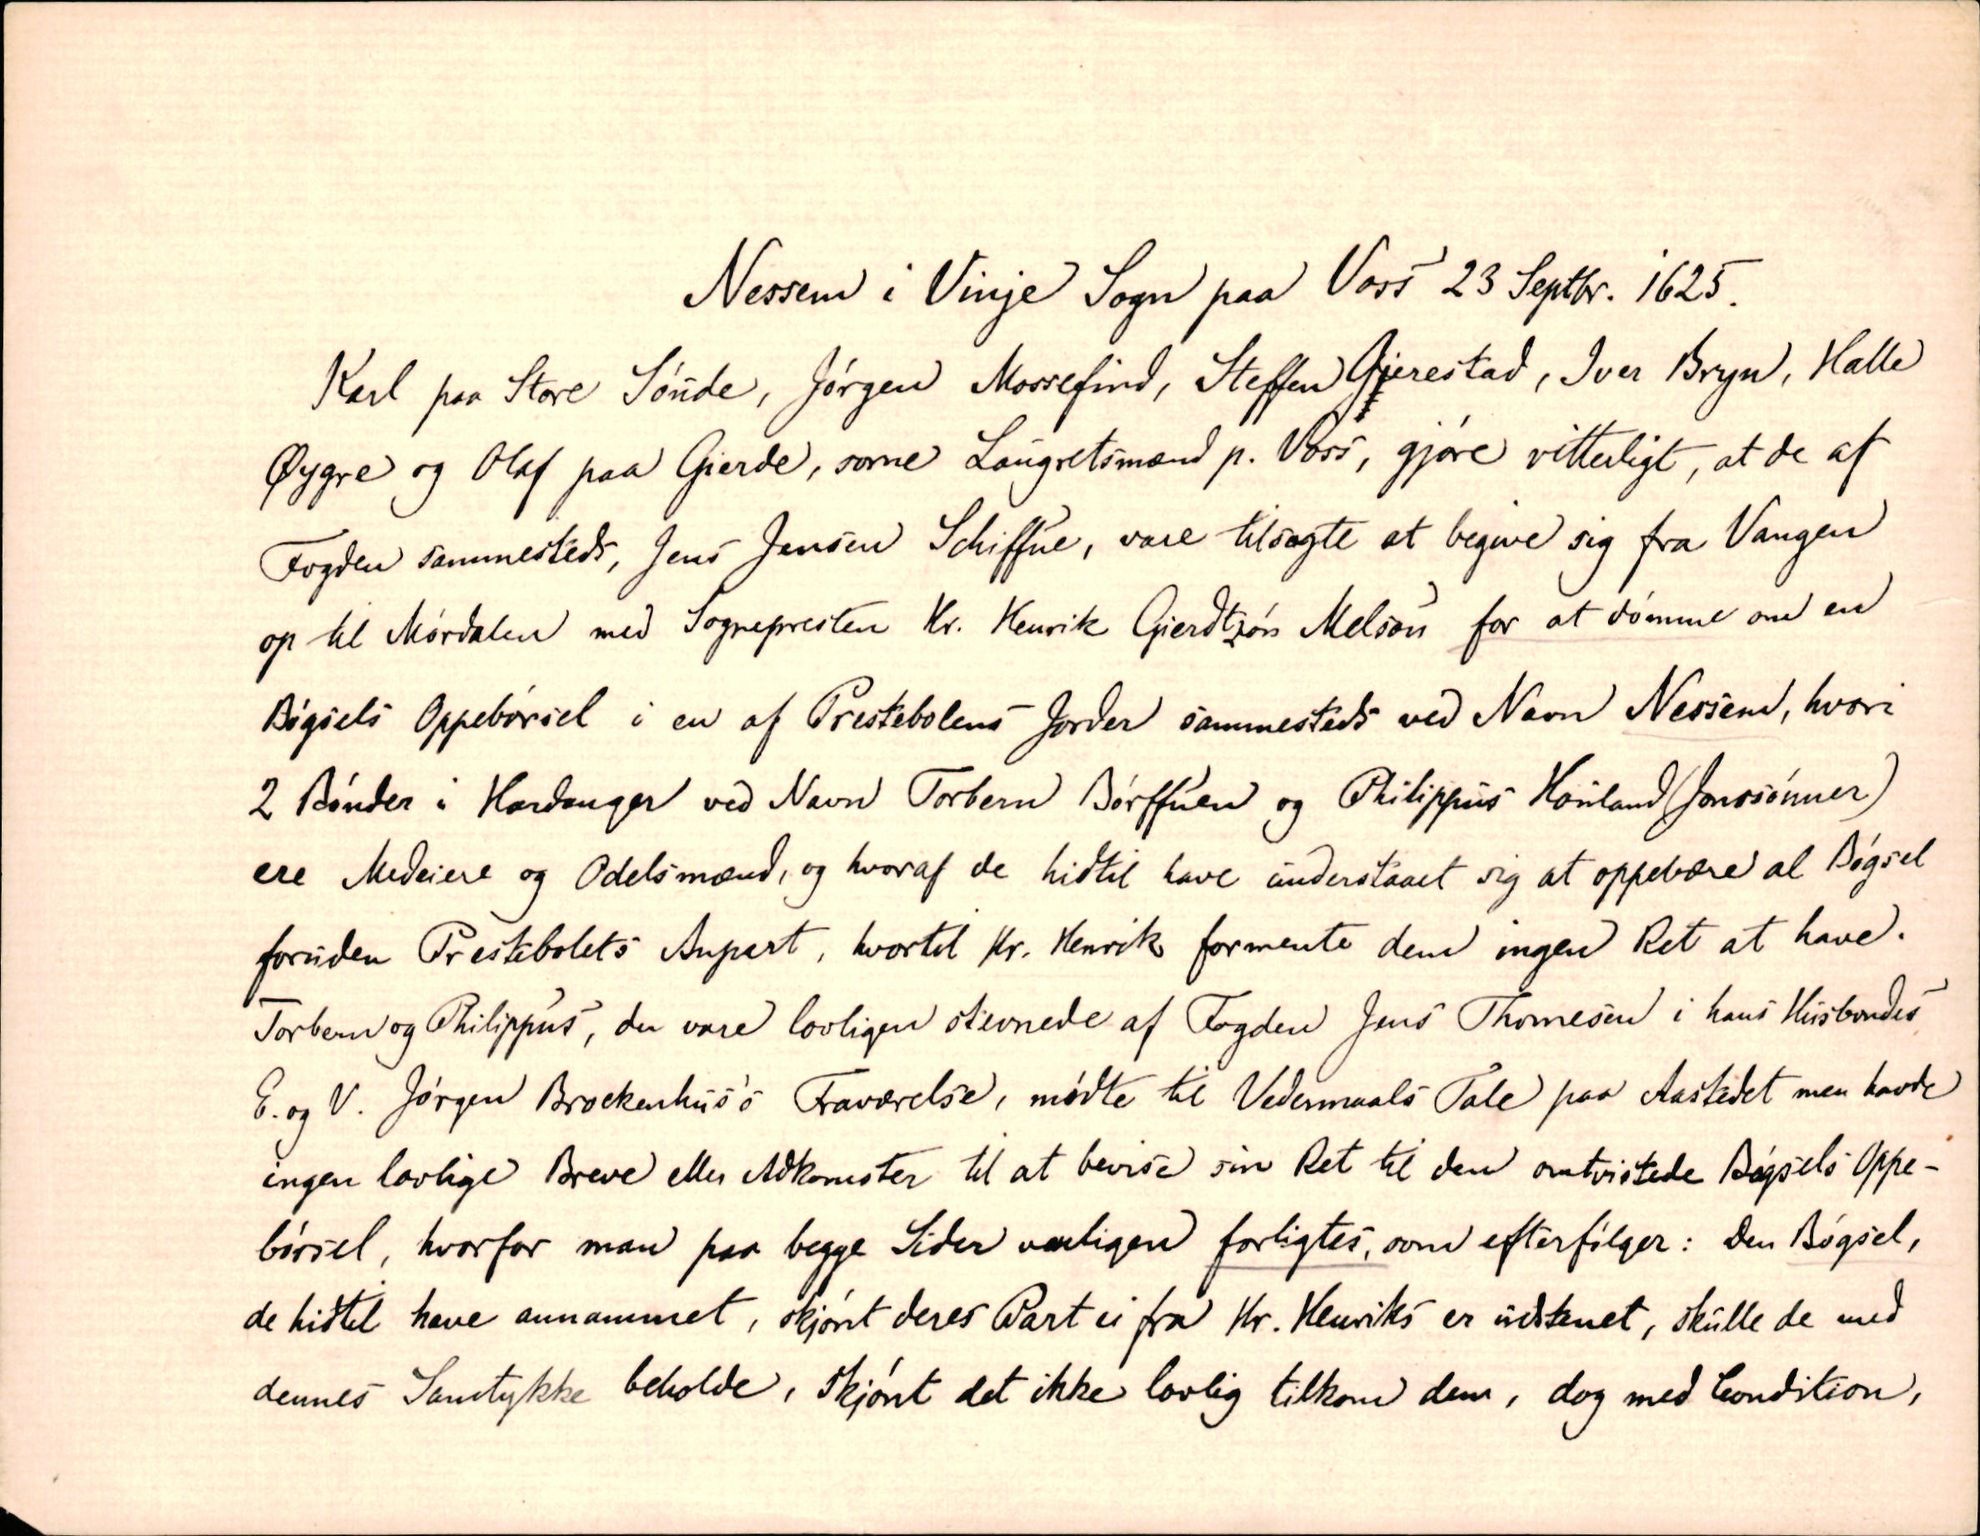 Nessem i Vinje Sogn paa Voss 23 Septbr. 1625.
Karl paa Store Sónde, Jórgen Mossefind, Steffen Gjerestad, Iver Bryn, Halle
Øygre og Olaf paa Gierde, sorne Laugretsmænd p. Voss, gjóre vitterligt, at de af
Fogden sammesteds, Jens Jensen Schiffue, vare tilsagte at begive sig fra Vangen
op til Mórdalen med Sognepresten Hr. Henrik Gierdtzón Melsou for at dómme om en
Bógsels Oppebórsel i en af Prestebolens Jorder sammesteds ved Navn Nessem, hvori
2 Bónder i Hardanger ved Navn Torbern Bórffuen og Philippus Houland (Jonssónner)
ere Medeiere og Odelsmænd, og hvoraf de hidtil have understaaet sig at oppebære al Bógsel
foruden Prestebolets Anpart, hvortil Hr. Henrik formente dem ingen Ret at have.
Torbern og Philippus, der vare lovligen stevnede af Fogden Jens Thomesen i hans Husbondes
E. og V. Jórgen Brockenhus's Fraværelse, módte til Vedermaals Tale paa Aastedet men havde
ingen lovlige Breve eller Adkomster til at bevise sin Ret til den omtvistede Bógsels Oppe-
bórsel, hvorfor man paa begge Sider venligen forligtes, som efterfólger: Den Bógsel,
de hidtil have annammet, skjónt deres Part ei fra Hr. Henriks er udskenet, skulle de med
dennes Samtykke beholde, skjónt det ikke lovlig tilkom dem, dog med Condition,